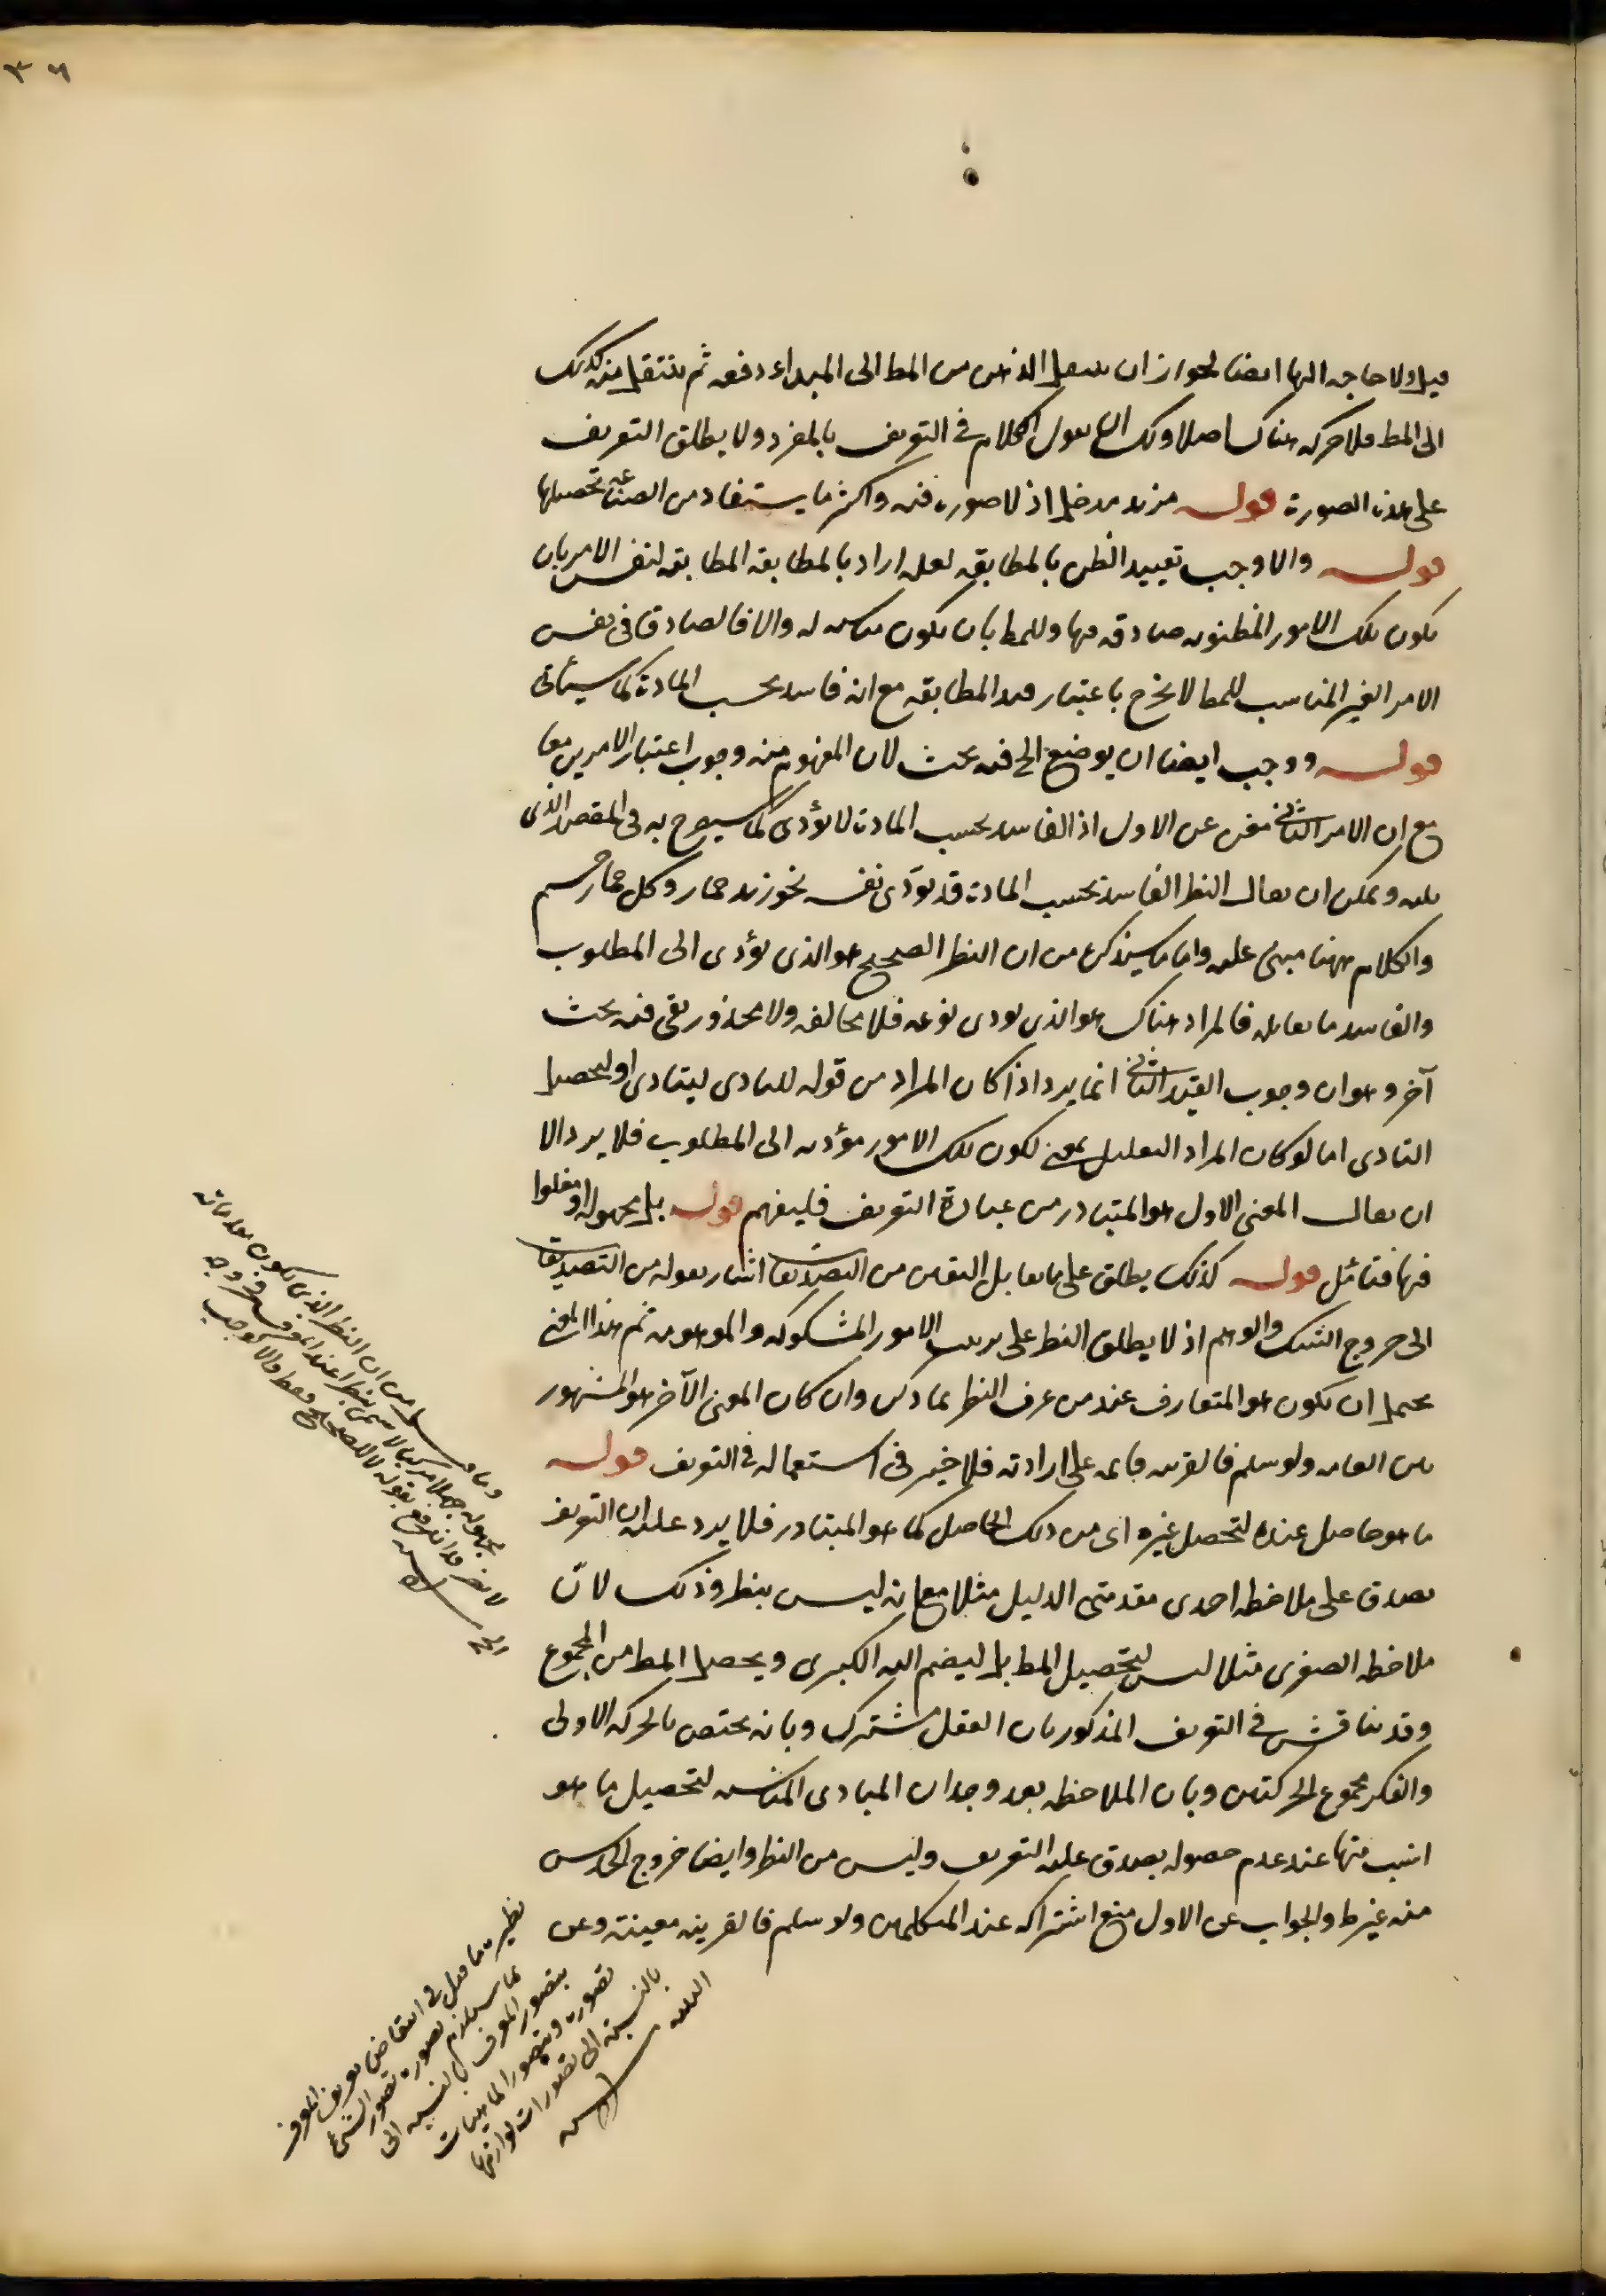 ٣٦
قيل ولا حاجه اليها ايضا لجواز ان ينتقل الذهن من المط الى المبداء دفعه ثم ينتقل منه كذلك
الى المط فلا حركه هناك اصلا ولك ان تقول الكلام فى التعريف بالمفرد ولا يطلق التعريف
على هذه الصورة قوله مزيد مدخل اذ لا صوره فيه واكثر ما يستفاد من الصناعه تحصيلها
قوله والا وجب تقييد الظن بالمطابقه لعله اراد بالمطابقه المطابقه لنفس الامر بان
يكون تلك الامور المظنونه صادقه فيها وللمط بان يكون مناسبه له والا فالصادق فى نفس
الامر الغير المناسب للمط لا يخرج باعتبار قيد المطابقه مع انه فاسد بحسب المادة كما سيأتى
قوله ووجب ايضا ان يوضع الخ فيه بحث لان المفهوم منه وجوب اعتبار الامرين معا
مع ان الامر الثانى مغن عن الاول اذ الفاسد بحسب المادة لا يؤدى كما سيصرح به فى المقصد الذى
يليه ويمكن ان يقال النظر الفاسد بحسب المادة قد يؤدى نفسه نحو زيد حمار وكل حمار جسم
والكلام ههنا مبنى عليه واما ما سيذكره من ان النظر الصحيح هو الذى يؤدى الى المطلوب
والفاسد ما يقابله فالمراد هناك هو الذى يؤدى نوعه فلا مخالفه ولا محذور بقى فيه بحث
آخر وهو ان وجوب القيد الثانى انما يرد اذا كان المراد من قوله للتادى ليتادى او ليحصل
التادى اما لو كان المراد التعليل بمعنى لكون تلك الامور مؤديه الى المطلوب فلا يرد الا
ان يقال المعنى الاول هو المتبادر من عبارة التعريف فليفهم قوله بل مجهولا او مغلوا
فيها فتائل قوله كذلك يطلق على ما يقابل اليقين من التصديقات اشار بقوله من التصديقات
الى خروج الشك والوهم اذ لا يطلق النظر على ترتيب الامور المشكوكه والموهومه ثم هذا المعنى
يحتمل ان يكون هو المتعارف عند من عرف النظر بما ذكر وان كان المعنى الآخر هو المشهور
بين العامه ولو سلم فالقرينه قايمه على ارادته فلا خير فى استعماله فى التعريف قوله
ما هو حاصل عنده لتحصيل غيره اى من ذلك الحاصل كما هو المتبادر فلا يرد عليه ان التعريف
يصدق على ملاحظه احدى مقدمتى الدليل مثلا مع انه ليس بنظر وذلك لان
ملاحظه الصغرى مثلا ليس لتحصيل المط بل ليضم اليه الكبرى ويحصل المط من المجموع
وقد يناقش فى التعريف المذكور بان العقل مشترك وبانه يختص بالحركه الاولى
والفكر مجموع الحركتين وبان الملاحظه بعد وجدان المبادى المناسبه لتحصيل ما هو
انسب منها عند عدم حصوله يصدق عليه التعريف وليس من النظر وايضا خروج الحدس
منه غير ط والجواب عن الاول منع اشتراكه عند المتكلمين ولو سلم فالقرينه معينة وعن
وما قيل من ان النظر الذى يكون مقدماته
مجهوله جهلا مركبا لا يسمى نظرا عند
نظيره ما قيل فى انتقاض تعريف المعرف
بما يستلزم تصوره تصور الشئ
بتصور المعرف بالنسبه الى
تصوره وبتصور الماهيات
بالنسبة الى تصورات لوازمها
البينه